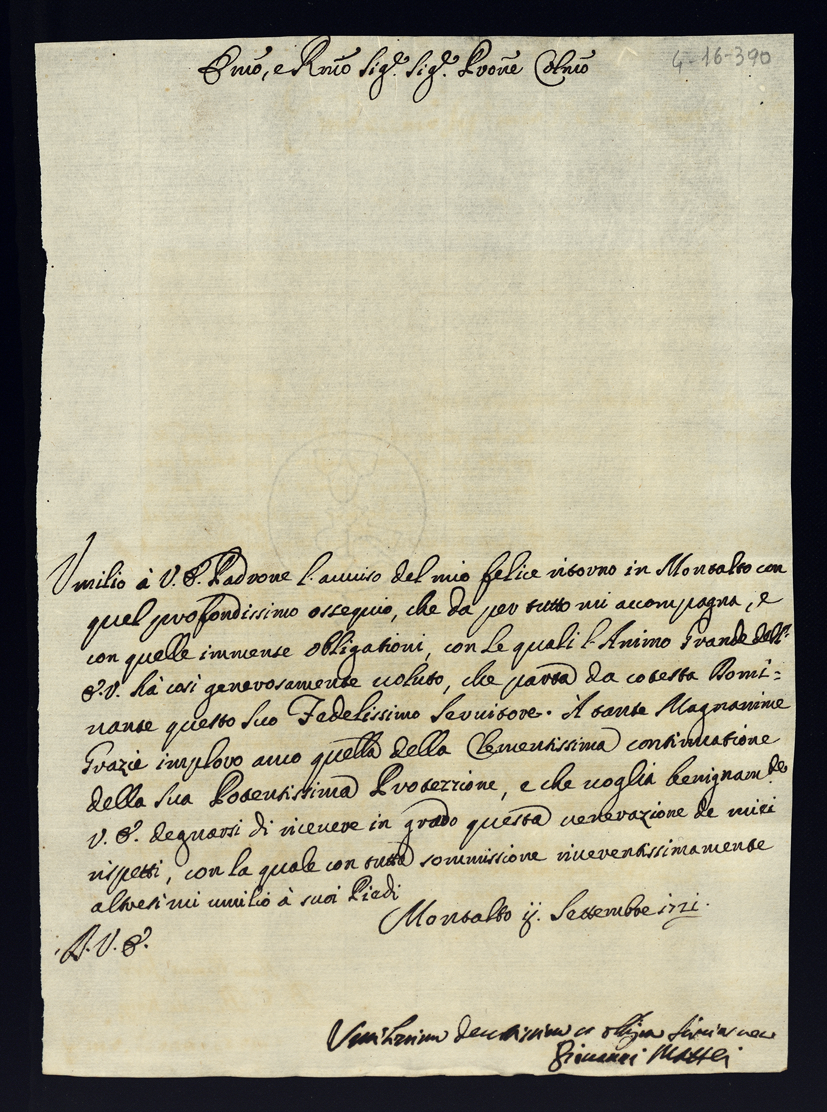 Emo, e Rmo Sigr. Sigr. Prone Colmo
4-16-390
Umilio à V. E. Padrone l'auuiso del mio felice ritorno in Montalto con
quel profondissimo ossequio, che da per tutto mi accompagna, e
con quelle immense obligationi, con le quali l'Animo Grande dell'
E.V. hà così generosamente uoluto, che parta da cotesta Domi=
nante questo suo Fedelissimo Seruitore. À tante Magnanime
Grazie imploro anco quella della Clementissima continuatione
della sua Potentissima Protezzione, e che uoglia benignamte
V. E. degnarsi di riceuere in grado questa uenerazione de miei
rispetti, con la quale con tutta sommissione riuerentissimamente
altresi mi umilio à suoi Piedi
Montalto ij. Settembre 1721.
D. V. E.
Giouanni Mattei